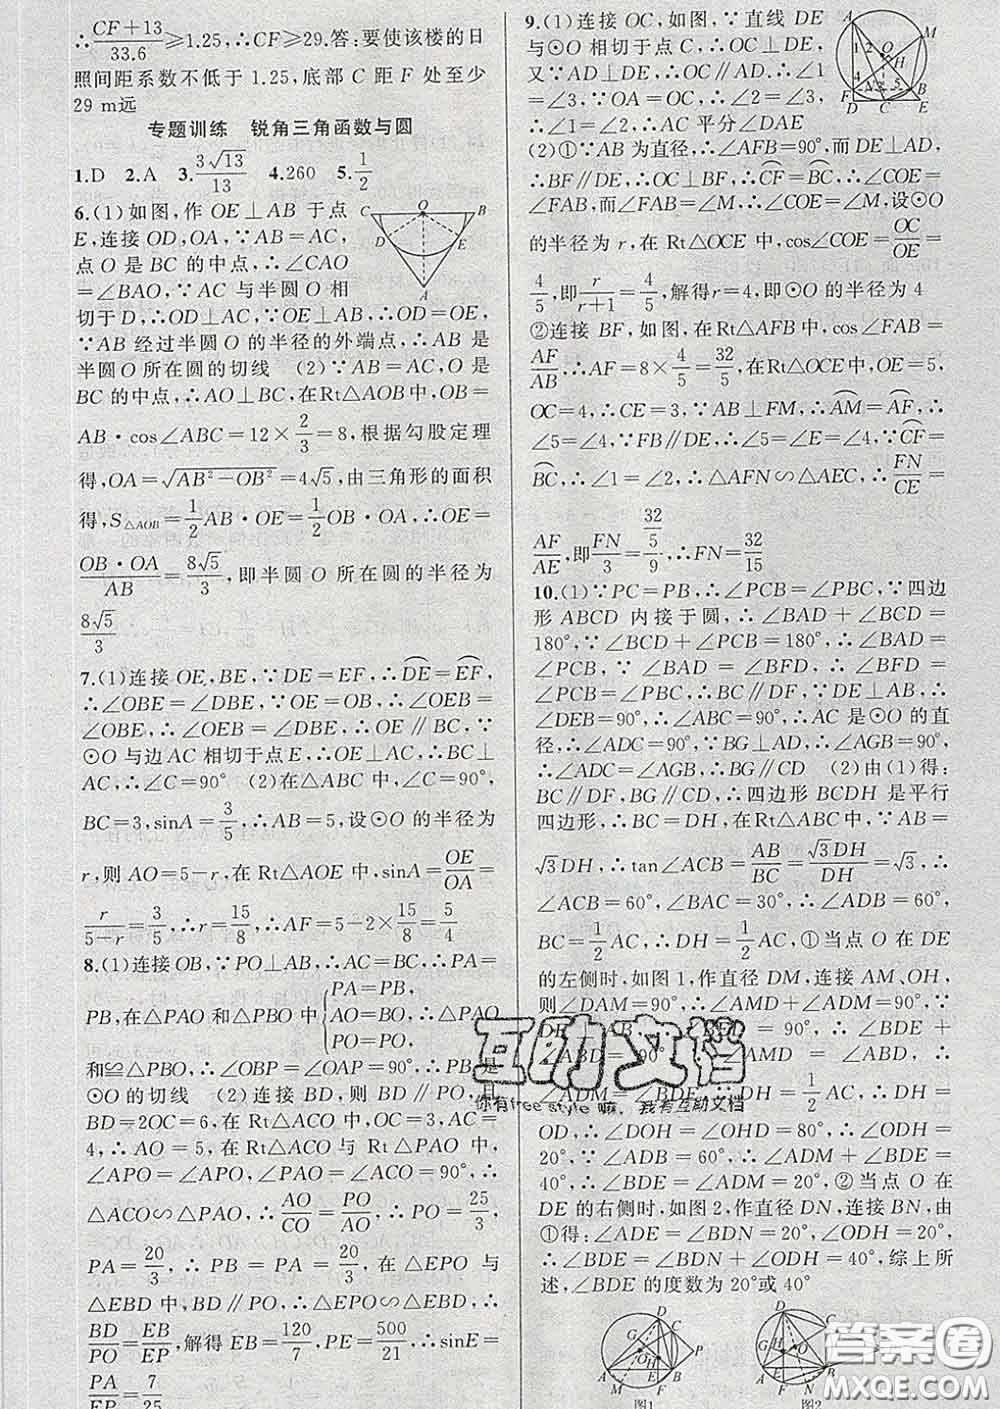 ∴(CF+13)/33.6≥1.25,∴CF≥29.答:要使该楼的日
照间距系数不低于1.25,底部C距F处至少
29 m远
专题训练 锐角三角函数与圆
1.D 2.A 3.3√13/13 4.260 5.1/2
6.(1)如图,作OE⊥AB于点
E,连接OD,OA,∵AB=AC,
点O是BC的中点,∴∠CAO
=∠BAO,∵AC与半圆O相
切于D,∴OD⊥AC,∵OE⊥AB,∴OD=OE,
∵AB经过半圆O的半径的外端点,∴AB是
半圆O所在圆的切线 (2)∵AB=AC,O是
BC的中点,∴AO⊥BC,在Rt△AOB中,OB=
AB·cos∠ABC=12×2/3=8,根据勾股定理
得,OA=√(AB²-OB²)=4√5,由三角形的面积
得,S△AOB=1/2AB·OE=1/2OB·OA,∴OE=
OB·OA/AB=8√5/3,即半圆O所在圆的半径为
8√5/3
7.(1)连接OE,BE,∵DE=EF,∴⌒DE=⌒EF,
∴∠OBE=∠DBE,∵OE=OB,∴∠OEB=
∠OBE,∴∠OEB=∠DBE,∴OE∥BC,∵
⊙O与边AC相切于点E,∴OE⊥AC,∴BC⊥
AC,∴∠C=90° (2)在△ABC中,∠C=90°,
BC=3,sinA=3/5,∴AB=5,设⊙O的半径为
r,则AO=5-r,在Rt△AOE中,sinA=OE/OA=
r/(5-r)=3/5,∴r=15/8,∴AF=5-2×15/8=5/4
8.(1)连接OB,∵PO⊥AB,∴AC=BC,∴PA=
PB,在△PAO和△PBO中{PA=PB,
AO=BO,∴△PAO
PO=PO,
和≌△PBO,∴∠OBP=∠OAP=90°,∴PB是
⊙O的切线 (2)连接BD,则BD∥PO,且
BD=2OC=6,在Rt△ACO中,OC=3,AC=
4,∴AO=5,在Rt△ACO与Rt△PAO中,
∠APO=∠APO,∠PAO=∠ACO=90°,∴
△ACO∽△PAO,∴AO/CO=PO/AO,∴PO=25/3,
PA=20/3,∴PB=PA=20/3,在△EPO与
△EBD中,BD∥PO,∴△EPO∽△EBD,∴
BD/PO=EB/EP,解得EB=120/7,PE=500/21,∴sinE=
PA/EP=7/25
9.(1)连接OC,如图,∵直线DE
与⊙O相切于点C,∴OC⊥DE,
又∵AD⊥DE,∴OC∥AD,∴∠1
=∠3,∵OA=OC,∴∠2=∠3,
∴∠1=∠2,∴AC平分∠DAE
(2)①∵AB为直径,∴∠AFB=90°,而DE⊥AD,
∴BF∥DE,∴OC⊥BF,∴⌒CF=⌒BC,∴∠COE=
∠FAB,而∠FAB=∠M,∴∠COE=∠M,设⊙O
的半径为r,在Rt△OCE中,cos∠COE=OC/OE=
4/5,即r/(r+1)=4/5,解得r=4,即⊙O的半径为4
②连接BF,如图,在Rt△AFB中,cos∠FAB=
AF/AB,∴AF=8×4/5=32/5,在Rt△OCE中,OE=5,
OC=4,∴CE=3,∵AB⊥FM,∴⌒AM=⌒AF,∴
∠5=∠4,∵FB∥DE,∴∠5=∠E=∠4,∵⌒CF=
⌒BC,∴∠1=∠2,∴△AFN∽△AEC,∴FN/CE=
AF/AE,即FN/3=(32/5)/9,∴FN=32/15
10.(1)∵PC=PB,∴∠PCB=∠PBC,∵四边
形ABCD内接于圆,∴∠BAD+∠BCD=
180°,∵∠BCD+∠PCB=180°,∴∠BAD=
∠PCB,∵∠BAD=∠BFD,∴∠BFD=
∠PBC,∴BC∥DF,∵DE⊥AB,∴
∠DEB=90°,∴∠ABC=90°,∴AC是⊙O的直
径,∴∠ADC=90°,∵BG⊥AD,∴∠AGB=90°,
∴∠ADC=∠AGB,∴BG∥CD (2)由(1)得:
BC∥DF,BG∥CD,∴四边形BCDH是平行
四边形,∴BC=DH,在Rt△ABC中,∵AB=
√3DH,∴tan∠ACB=AB/BC=√3DH/DH=√3,∴
∠ACB=60°,∠BAC=30°,∴∠ADB=60°,
BC=1/2AC,∴DH=1/2AC,①当点O在DE
的左侧时,如图1,作直径DM,连接AM、OH,
则∠DAM=90°,∴∠AMD+∠ADM=90°,∵
90°,∴∠BDE+
∠ABD=90°,∠AMD=∠ABD,∴
∠ADM=∠BDE,∵DH=1/2AC,∴DH=
OD,∴∠DOH=∠OHD=80°,∴∠ODH=
20°,∵∠ADB=60°,∴∠ADM+∠BDE=
40°,∴∠BDE=∠ADM=20°,②当点O在
DE的右侧时,如图2,作直径DN,连接BN,由
①得:∠ADE=∠BDN=20°,∠ODH=20°,
∴∠BDE=∠BDN+∠ODH=40°,综上所
述,∠BDE的度数为20°或40°
图1
图2
互助文档
你有free style嘛,我有互助文档
答案圈
MXQE.COM